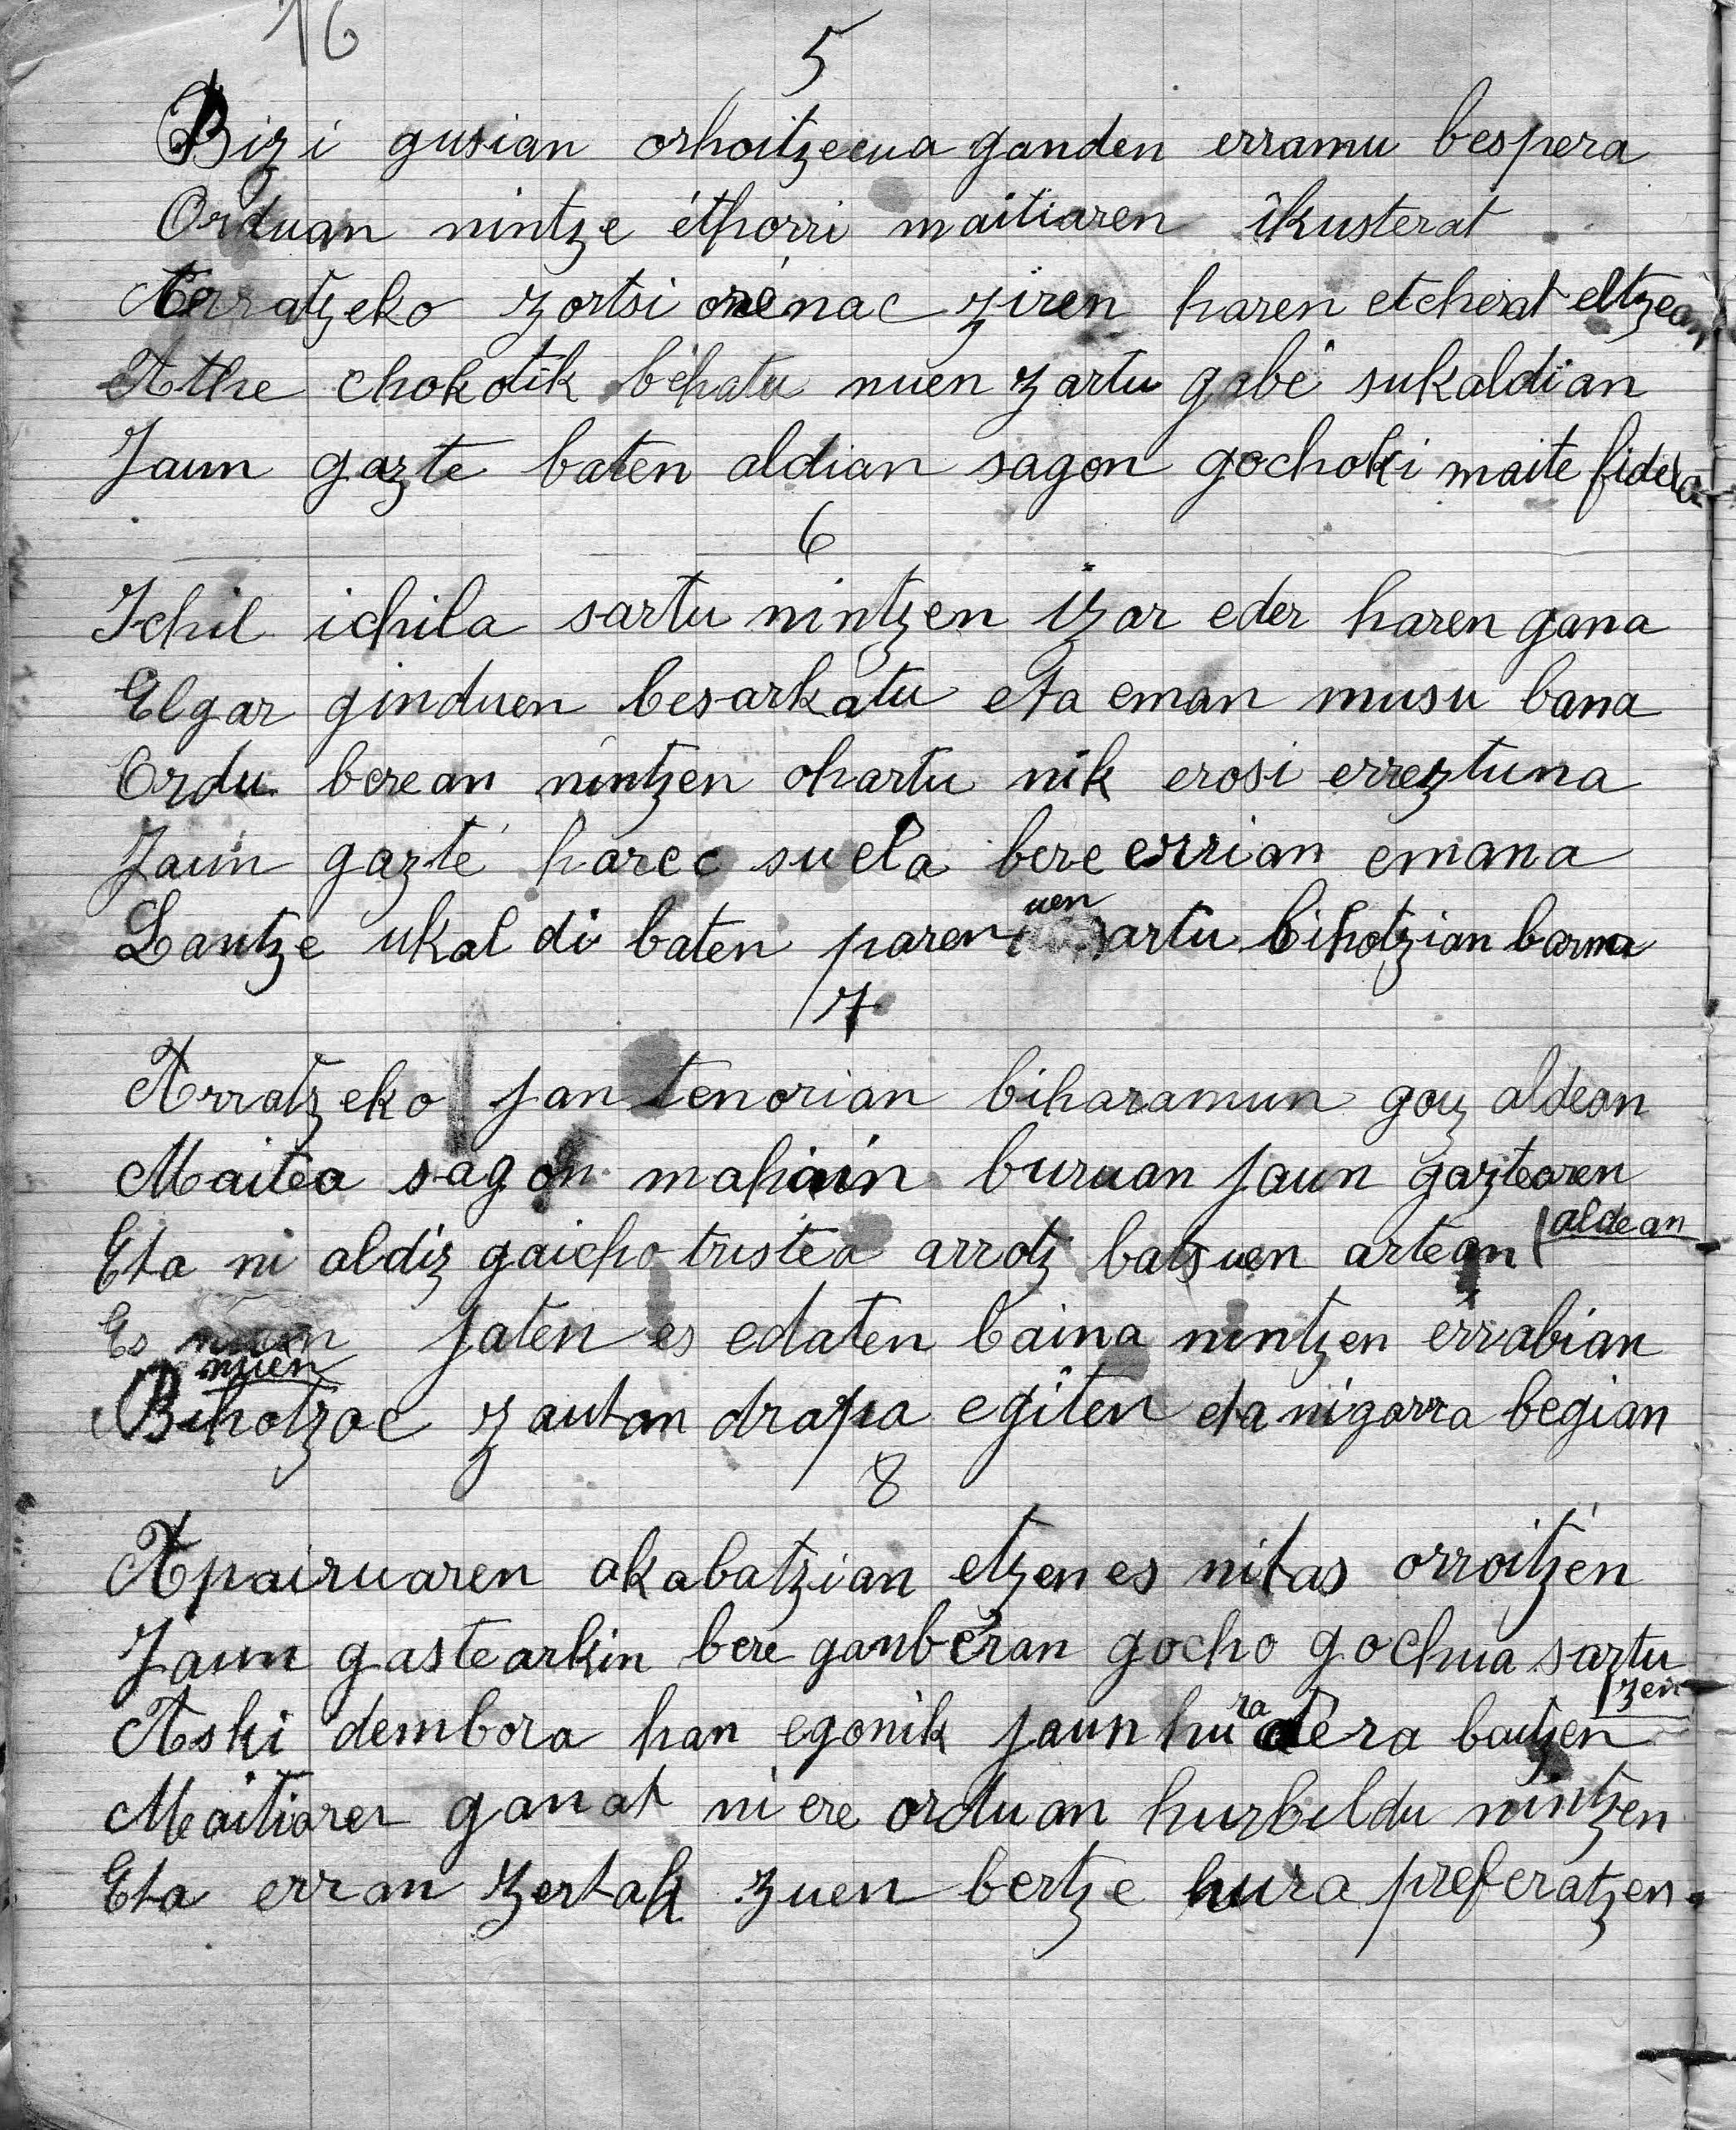 16
5
Bizi gusian orhoitzecua ganden erramu bespera
Orduan nintze éthorri maitiaren ikusterat
Arratzeko zortsi orénac ziren haren etcherat eltzean
Athe chokotik béhatu nuen zartu gabe sukaldian
Jaun gazte baten aldian sagon gochoki maite fidela
6
Ichil ichila sartu nintzen izar eder haren gana
Elgar ginduen besarkatu eta eman musu bana
Ordu berean nintzen ohartu nik erosi erreztuna
Jaun gazté harec suela bere errian emana
Lantze ukal di baten paren
uen
sartu bihotzian barna
7
Arratzeko jan tenorian biharamun goiz aldean
Maitea sagon mahain buruan jaun gaztearen
aldean
Eta ni aldiz gaicho tristea arrotz batsuen artean
Es nuen jaten es edaten baina nintzen errabian
nuen
Bihotzac zautan drapa egiten eta nigarra begian
8
Apairuaren akabatzian etzen es nitas orroitzén
Jaun gastearkin bere ganbéran gocho gochua sartu
zen
Aski dembora han egonik jaun hura atera baitzen
Maitiaren ganat ni ere orduan hurbildu nintzen
Eta erran zertak zuen bertze hura preferatzen.